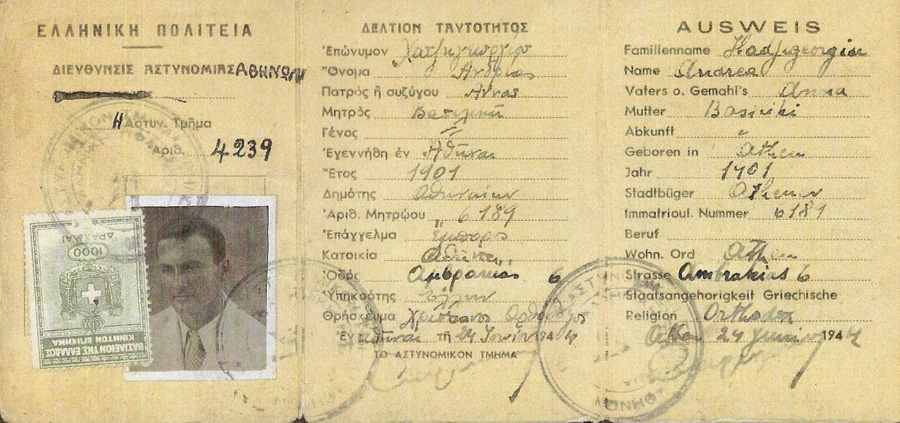 ΕΛΛΗΝΙΚΗ ΠΟΛΙΤΕΙΑ
ΔΙΕΥΘΥΝΣΙΣ ΑΣΤΥΝΟΜΙΑΣ ΑΘΗΝΩΝ
Η Αστυν. Τμήμα
Αριθ. 4239
1000
ΔΡΑΧΜΑΙ
ΒΑΣΙΛΕΙΟΝ ΤΗΣ ΕΛΛΑΔΟΣ
ΚΙΝΗΤΟΝ ΕΠΙΣΗΜΑ
ΔΕΛΤΙΟΝ ΤΑΥΤΟΤΗΤΟΣ
Ἐπώνυμον Χατζηγεωργίου
Ὄνομα Ἀνδρέας
Πατρὸς ἢ συζύγου Ἄννας
Μητρὸς Βασιλικὴ
Γένος
Ἐγεννήθη ἐν Ἀθῆναι
Ἔτος 1901
Δημότης Ἀθηναίων
Ἀριθ. Μητρώου 6189
Ἐπάγγελμα Ἔμπορος
Κατοικία Ἀθῆναι
Ὁδὸς Αμβρακίας 6
Ὑπηκοότης Ἕλλην
Θρήσκευμα Χριστιανὸς Ὀρθόδοξος
Ἐν Ἀθῆναι τῇ 24 Ἰουνίου 1944
ΤΟ ΑΣΤΥΝΟΜΙΚΟΝ ΤΜΗΜΑ
AUSWEIS
Familienname Hadjigeorgiu
Name Andrea
Vaters o. Gemahl's Anna
Mutter Basiliki
Abkunft „
Geboren in Athen
Jahr 1901
Stadtbüger Athener
Immatrioul. Nummer 6189
Beruf
Wohn. Ord Athen
Strasse Ambrakias 6
Staatsangehorigkeit Griechische
Religion Orthodox
Athen 24 Juni 1944